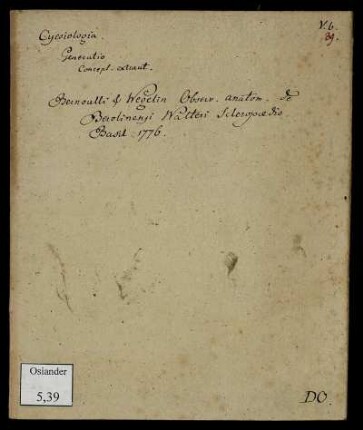 V. b.
39.
Cyesiologia.
Generatio
Concept. extraut.
Bernoulli & Wegelin Observ. anatom. de
Berolinensi Walteri Scleropædio
Basil. 1776.
Osiander
5,39
DO.